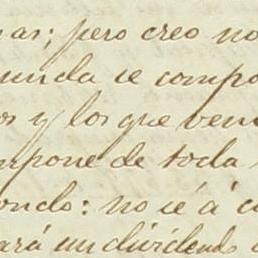 mas; pero creo no
unda se compo
os y los que ven
mpone de toda
ondo: no sé á c
ará un dividendo